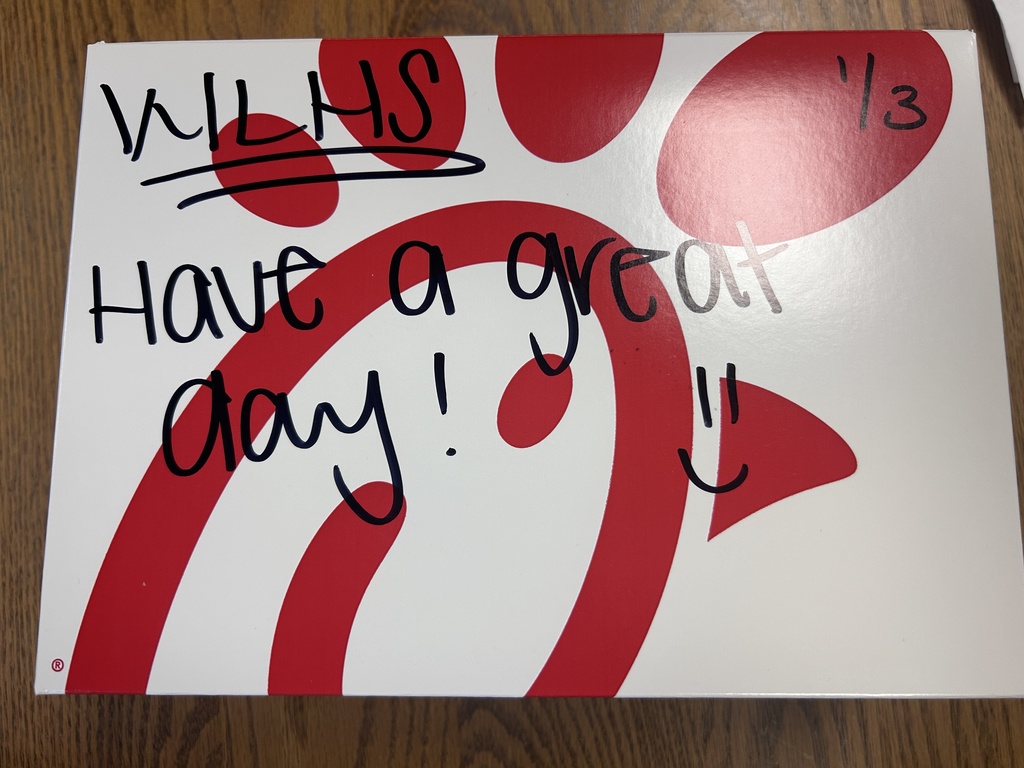 WLHS
1/3
Have a great
day! :)
®